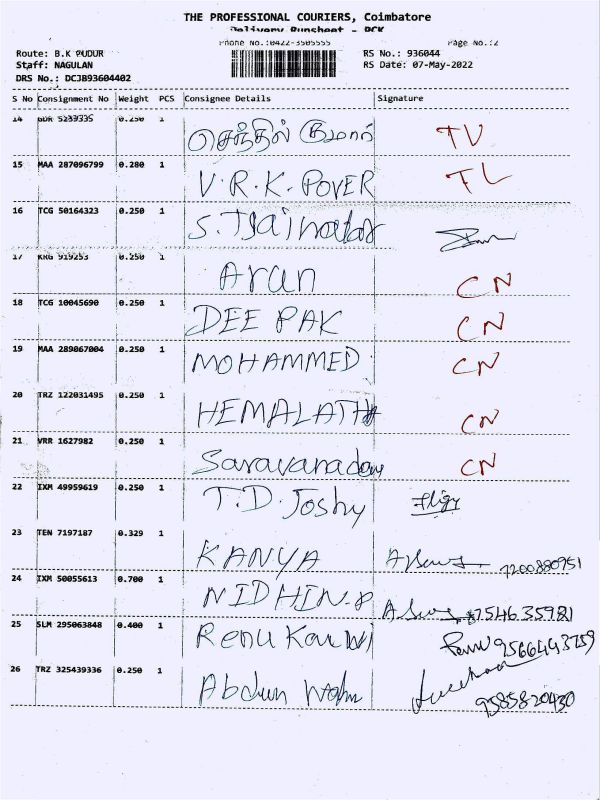 THE PROFESSIONAL COURIERS, Coimbatore
Delivery Runsheet - PCK
Phone No.:0422-3505555 Page No.:2
Route: B.K PUDUR RS No.: 936044
Staff: NAGULAN RS Date: 07-May-2022
DRS No.: DCJB93604402
S No Consignment No Weight PCS Consignee Details Signature
14 GDR 5239335 0.250 1 செந்தில் குமார் TV
15 MAA 287096799 0.280 1 V.R.K. POVER TL
16 TCG 50164323 0.250 1 S.
17 KRG 919253 0.250 1 Arun CN
18 TCG 10045690 0.250 1 DEEPAK CN
19 MAA 289867004 0.250 1 MOHAMMED CN
20 TRZ 122031495 0.250 1 HEMALATHA CN
21 VRR 1627982 0.250 1 CN
22 IXM 49959619 0.250 1 T.D. Joshy
23 TEN 7197187 0.329 1 KANYA 7200880951
24 IXM 50055613 0.700 1 NIDHIN.P 8754635981
25 SLM 295063848 0.400 1 Renu 9566443759
26 TRZ 325439336 0.250 1 9585820430